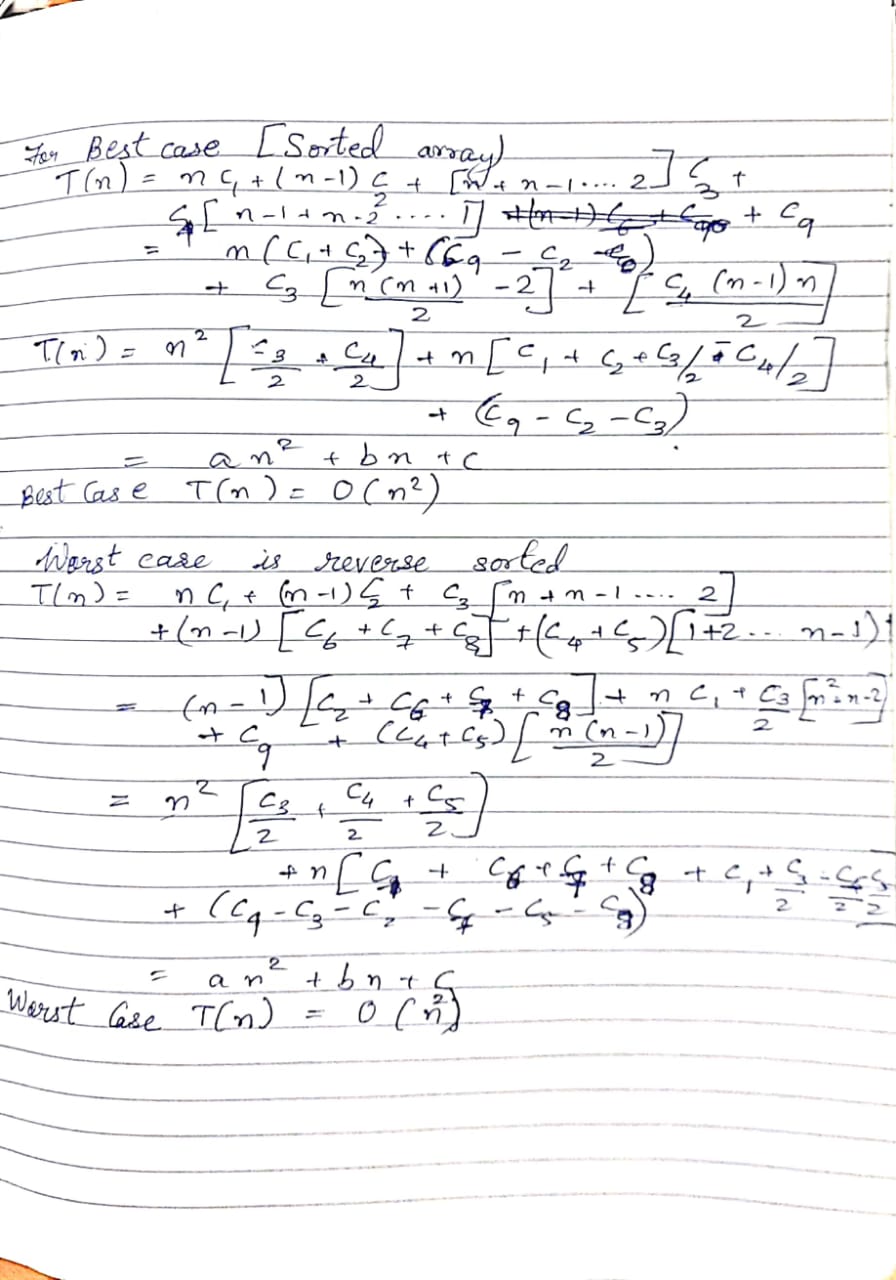 For Best case [Sorted array)
T(n) = n C₁ + (n-1) C₂ + [n + n-1 .... 2] C₃ +
C₄ [ n-1 + n-2 .... 1] + C₉
= n (C₁ + C₂) + (C₉ - C₂)
+ C₃ [n(n+1)/2 - 2] + [C₄ (n-1) n/2]
T(n) = n² [C₃/2 + C₄/2] + n [C₁ + C₂ + C₃/2 - C₄/2]
+ (C₉ - C₂ - C₃)
= an² + bn + c
Best Case T(n) = O(n²)
Worst case is reverse sorted
T(n) = n C₁ + (n-1) C₂ + C₃ [n + n-1 .... 2]
+ (n-1) [C₆ + C₇ + C₈] + (C₄ + C₅) [1+2 ... n-1) +
= (n-1) [C₂ + C₆ + C₇ + C₈] + n C₁ + C₃/2 [n²+n-2]
+ C₉ + (C₄ + C₅) [n(n-1)/2]
= n² [C₃/2 + C₄/2 + C₅/2]
+ n [ + C₆ + C₇ + C₈ + C₁ + C₃/2 - C₄/2 - C₅/2
+ (C₉ - C₃ - C₂ - C₇ - C₅ - C₈)
= an² + bn + C
Worst Case T(n) = O(n²)